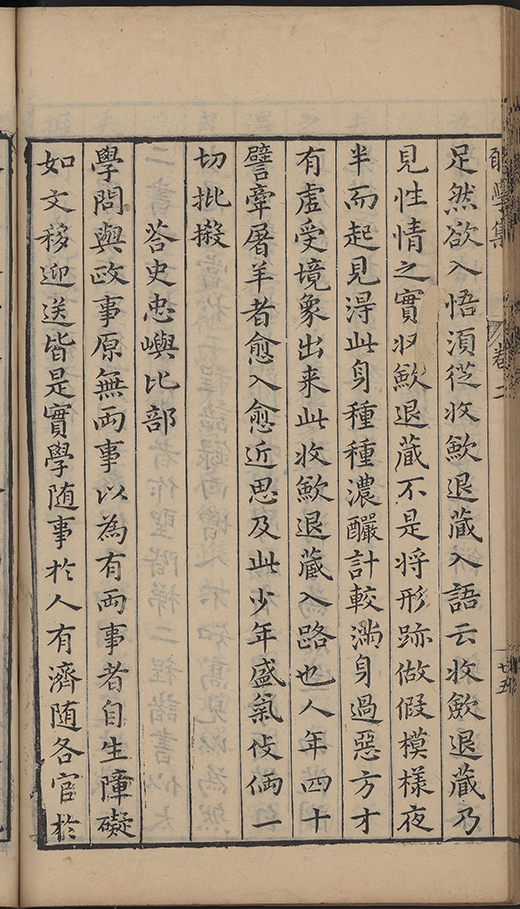 足然欲入悟須從收歛退藏入語云收歛退藏乃
見性情之實收歛退藏不是将形跡做假模樣夜
半而起見淂此身種種濃釅計較滿身過惡方才
有虛受境象出来此收歛退藏入路也人年四十
譬牽屠羊者愈入愈近思及此少年盛氣伎倆一
切批撥
荅史忠嶼比部
學問與政事原無兩事以為有兩事者自生障礙
如文移迎送皆是實學随事扵人有濟随各官扵